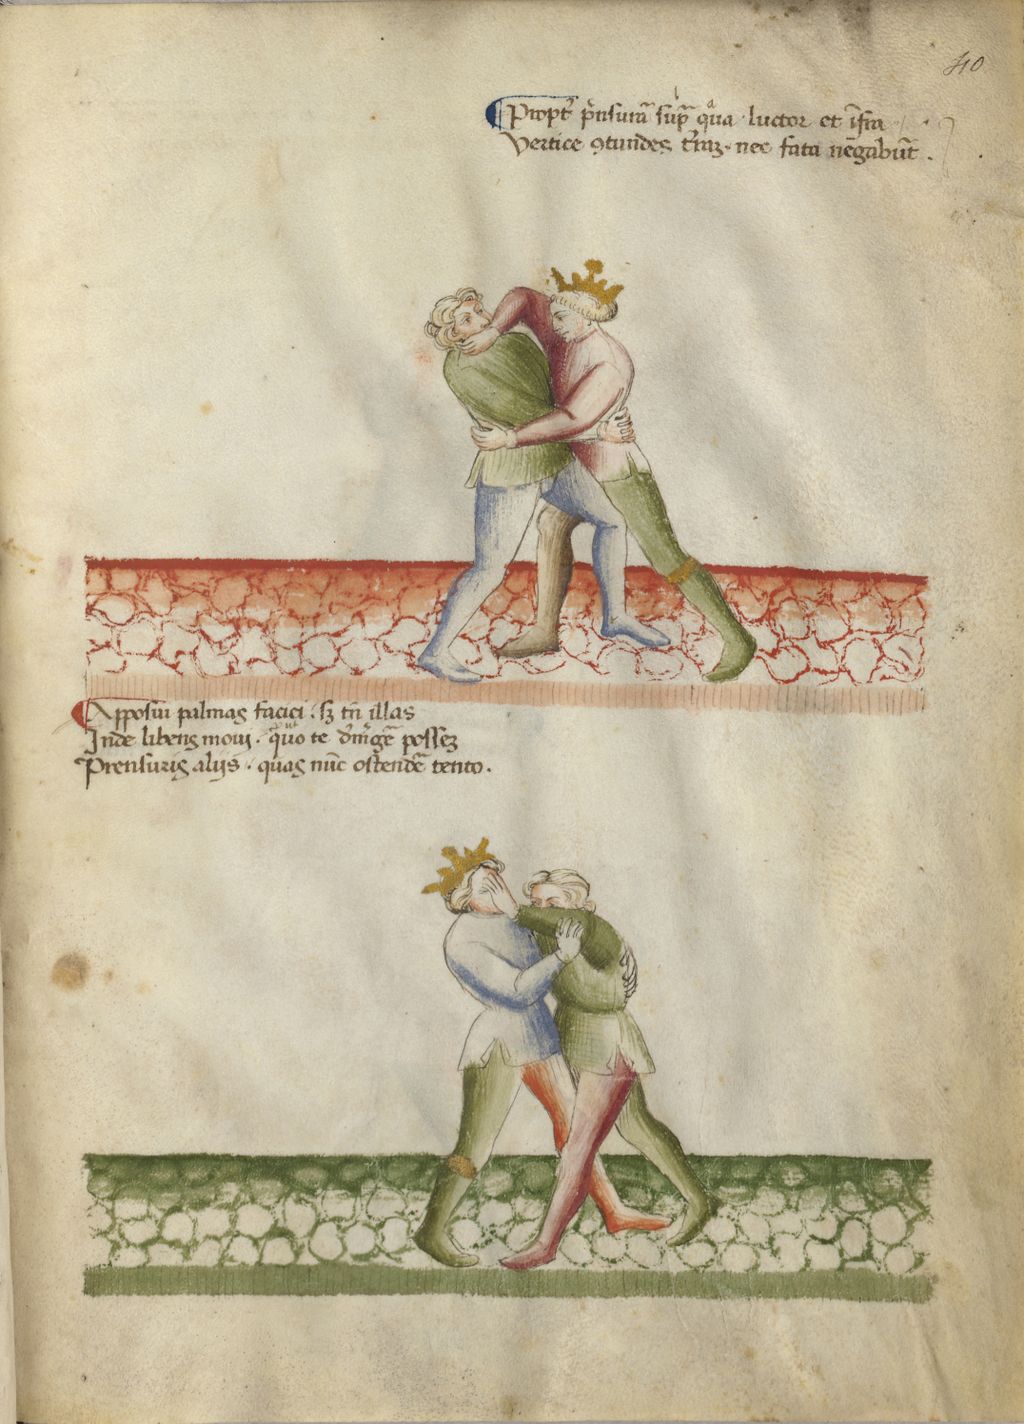 40
Propt̉ p̃nsurã sup̃ qua luctor et ĩfra
Vertice ꝯtundes t̃raꝫ. nec fata nẽgabũt.
Apposui palmas faciei. sꝫ tñ illas
Inde libens moui. quo te posseꝫ
Prensuris alijs. quas nũc ostendẽ tento.